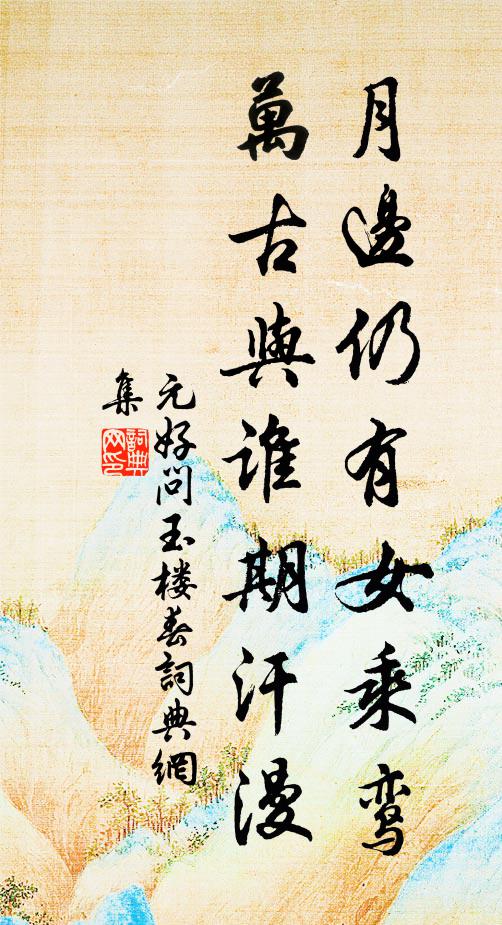 月邊仍有女乘鸾
萬古與谁期汗漫
元好问玉楼春詞典網
集
詞典网印